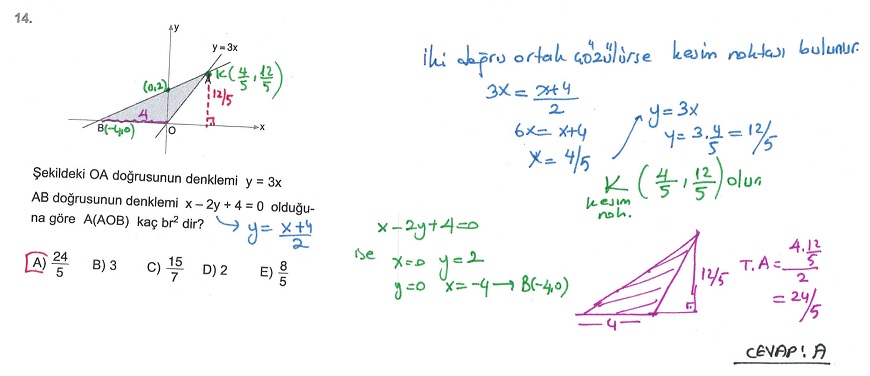 14.
y
y = 3x
K(4/5, 12/5)
(0,2)
12/5
4
B(-4,0)
O
x
Şekildeki OA doğrusunun denklemi y = 3x
AB doğrusunun denklemi x – 2y + 4 = 0 olduğu-
na göre A(AOB) kaç br² dir?
y = x+4/2
A) 24/5 B) 3 C) 15/7 D) 2 E) 8/5
İki doğru ortak çözülürse kesim noktası bulunur.
3x = x+4/2
6x = x+4
x = 4/5
y = 3x
y = 3.4/5 = 12/5
K (4/5, 12/5) olur
kesim
nok.
x - 2y + 4 = 0
ise x=0 y=2
y=0 x=-4 → B(-4,0)
12/5
4
T.A = 4.12/5/2
= 24/5
CEVAP: A